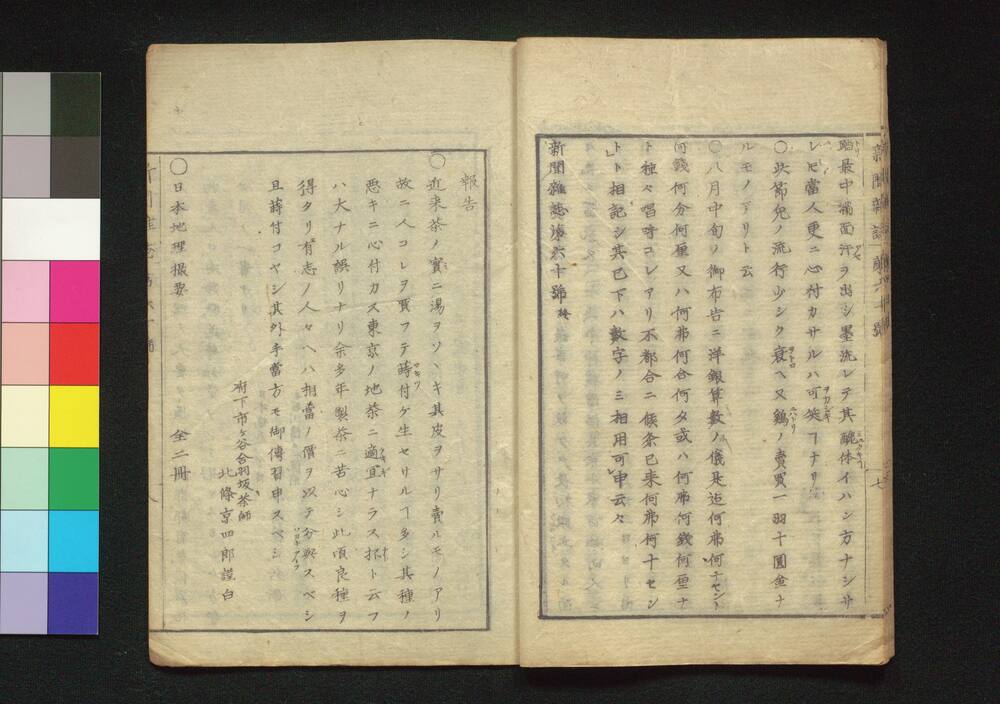 踏最中満面汗ヲ出シ墨流レテ其醜体イハン方ナシサ
レモ當人更ニ心付カサルハ可笑ヿナリ
〇此節兎ノ流行少シク衰ヘ又鶏ノ賣買一羽十圓金ナ
ルモノアリト云
〇八月中旬ノ御布告ニ洋銀算数ノ儀是迄何弗何セント
何銭何分何厘又ハ何弗何合何タ或ハ何弗何銭何厘ナ
ト種々唱呼コレアリ不都合ニ候条已来何弗何十セン
トト相記シ其已下ハ数字ノミ相用可申云々
新聞雑誌第六十號 終
報告
〇近来茶ノ實ニ湯ヲソヽキ其皮ヲサリ賣ルモノアリ
故ニ人コレヲ買フテ蒔付ケ生セサルヿ多シ其種ノ
悪キニ心付カス東京ノ地茶ニ適宜ナラス抔ト云フ
ハ大ナル誤リナリ余多年製茶ニ苦心シ此頃良種ヲ
得タリ有志ノ人々ヘハ相當ノ價ヲ以テ分與スベシ
且蒔付コヤシ其外手當方モ御傳習申スベシ
府下市ヶ谷合羽坂茶師
北條京四郎謹白
〇日本地理撮要 全二冊